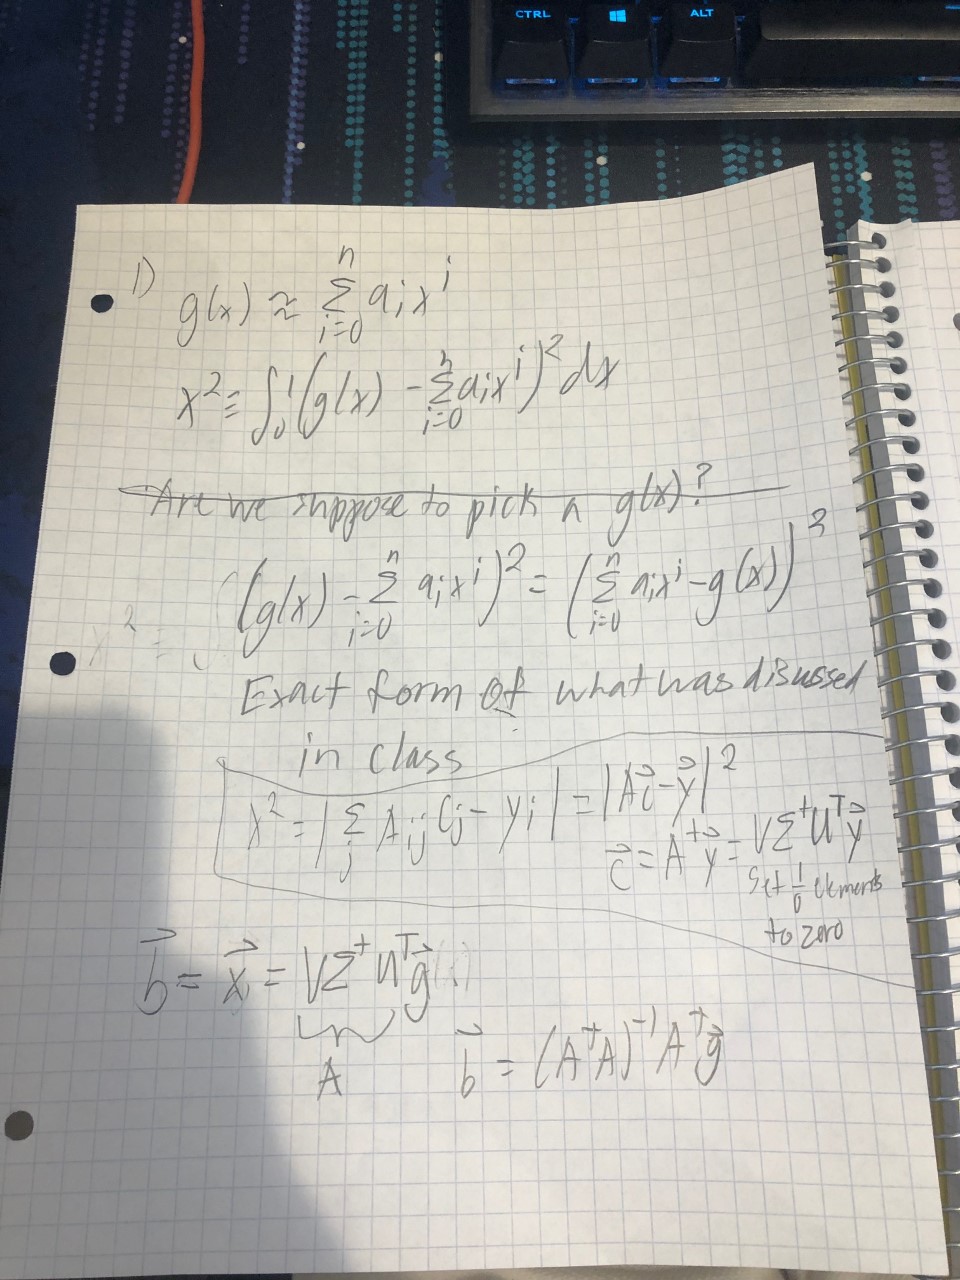 CTRL ALT
1) g(x) ≈ Σ_{i=0}^{n} a_i x^i
X² ≡ ∫_0^1 (g(x) - Σ_{i=0}^{n} a_i x^i)² dx
Are we suppose to pick a g(x)?
(g(x) - Σ_{i=0}^{n} a_i x^i)² = (Σ_{i=0}^{n} a_i x^i - g(x))²
x² =
Exact form of what was disussed
in class
X² = |Σ_j A_{ij} C_j - y_i| = |A\vec{c} - \vec{y}|²
\vec{c} = A^+ \vec{y} = VΣ^+ U^T \vec{y}
Set 1/0 elements
to zero
\vec{b} = \vec{x} = VΣ^+ U^T \vec{g}
A
\vec{b} = (A^+ A)^{-1} A^+ \vec{g}